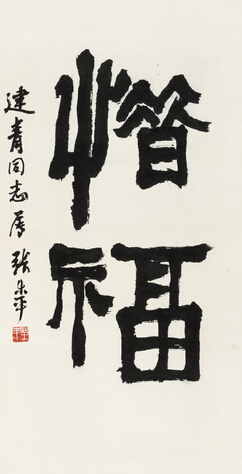 惜福
建青同志属 张平